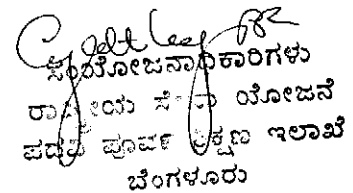 ಸಂಯೋಜನಾಧಿಕಾರಿಗಳು
ರಾಷ್ಟ್ರೀಯ ಸೇವಾ ಯೋಜನೆ
ಪದವಿ ಪೂರ್ವ ಶಿಕ್ಷಣ ಇಲಾಖೆ
ಬೆಂಗಳೂರು